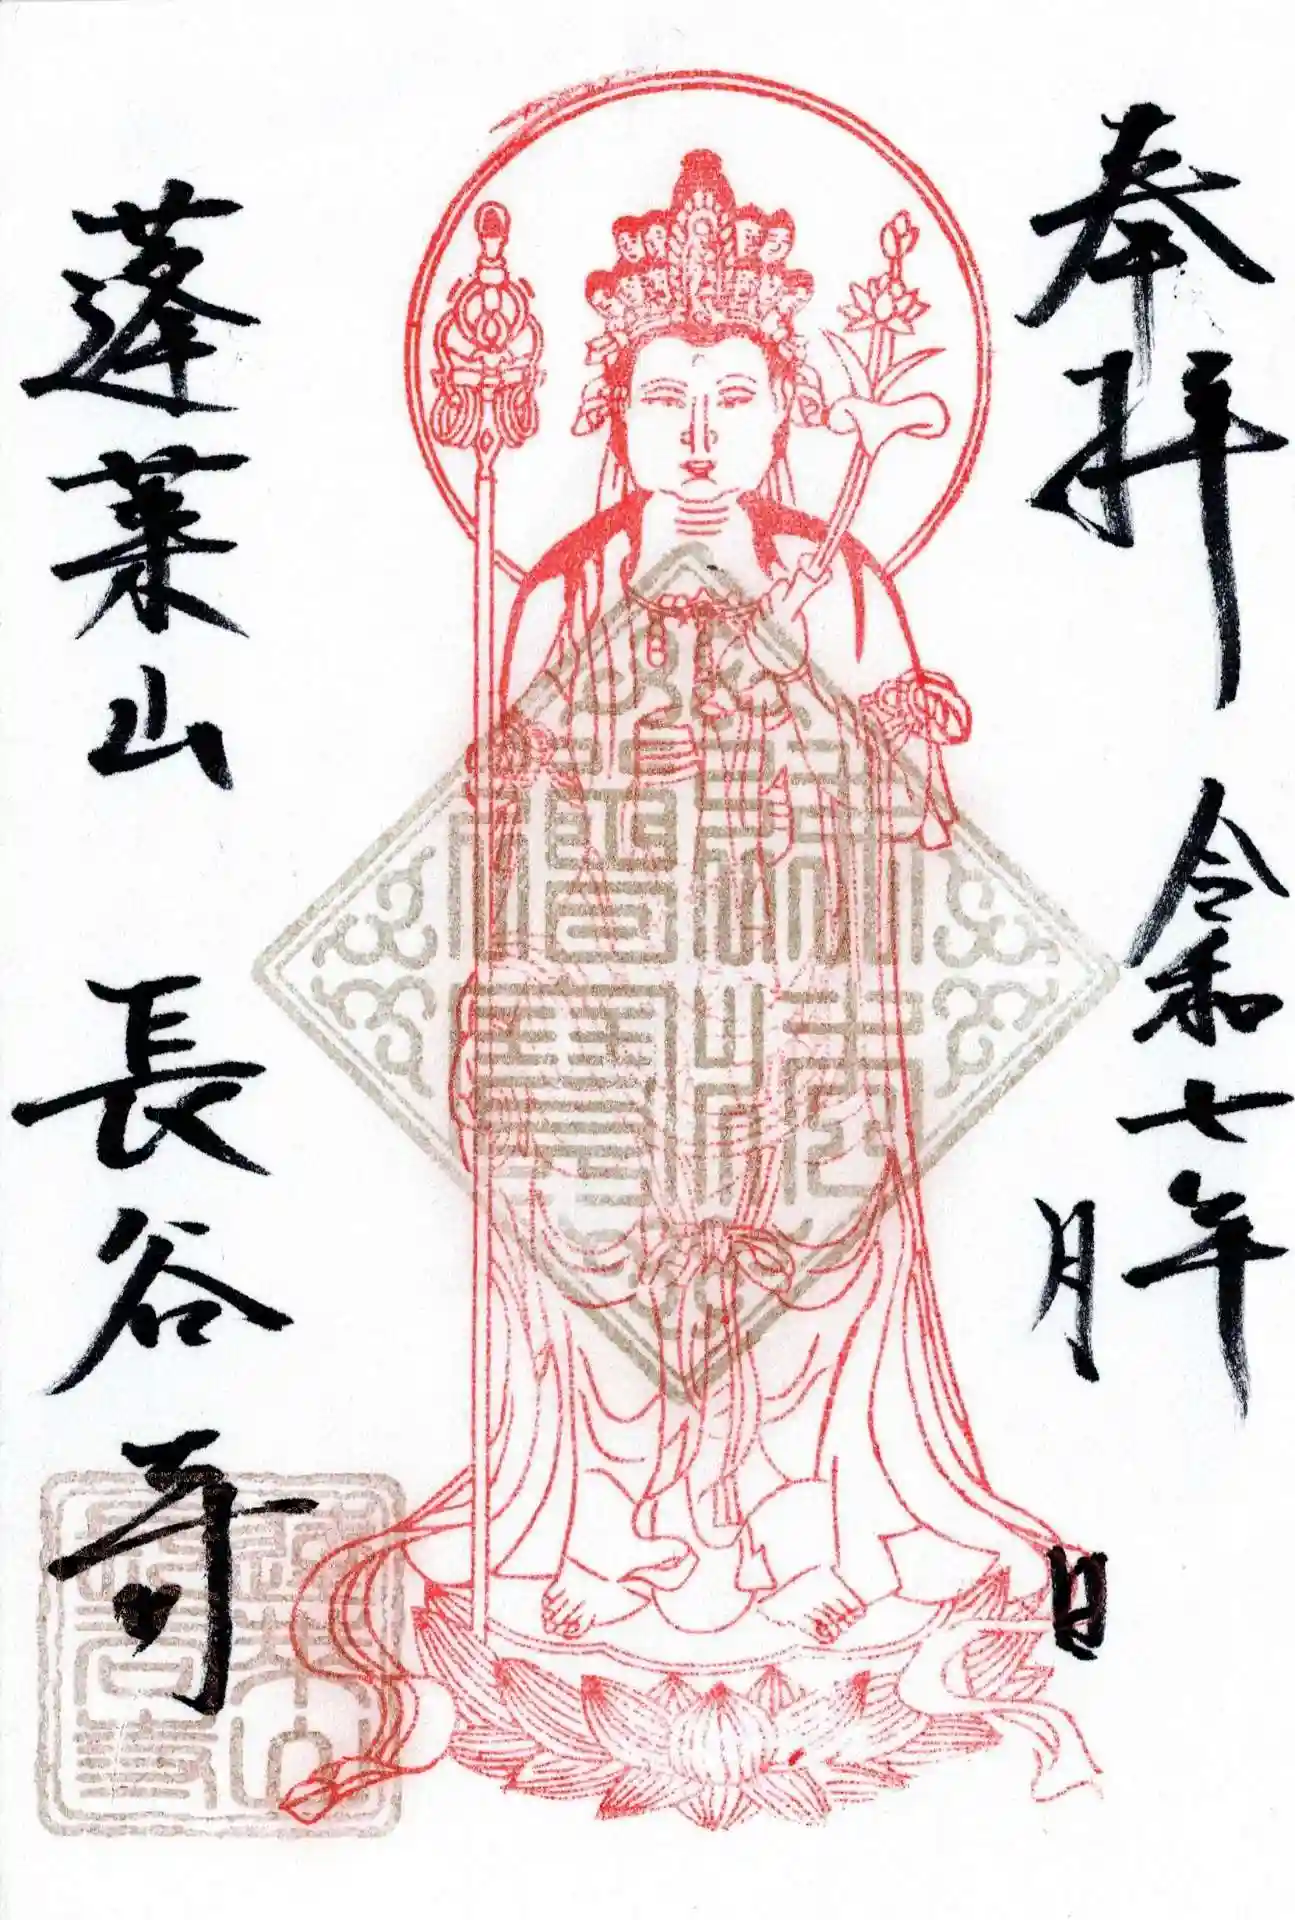 奉拝
令和七年
月 日
蓬莱山 長谷寺